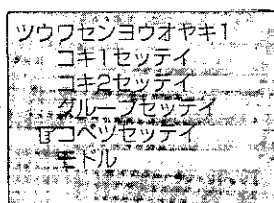 ツウワセンヨウオヤキ1
コキ1セッテイ
コキ2セッテイ
グループセッテイ
☞コベツセッテイ
モドル